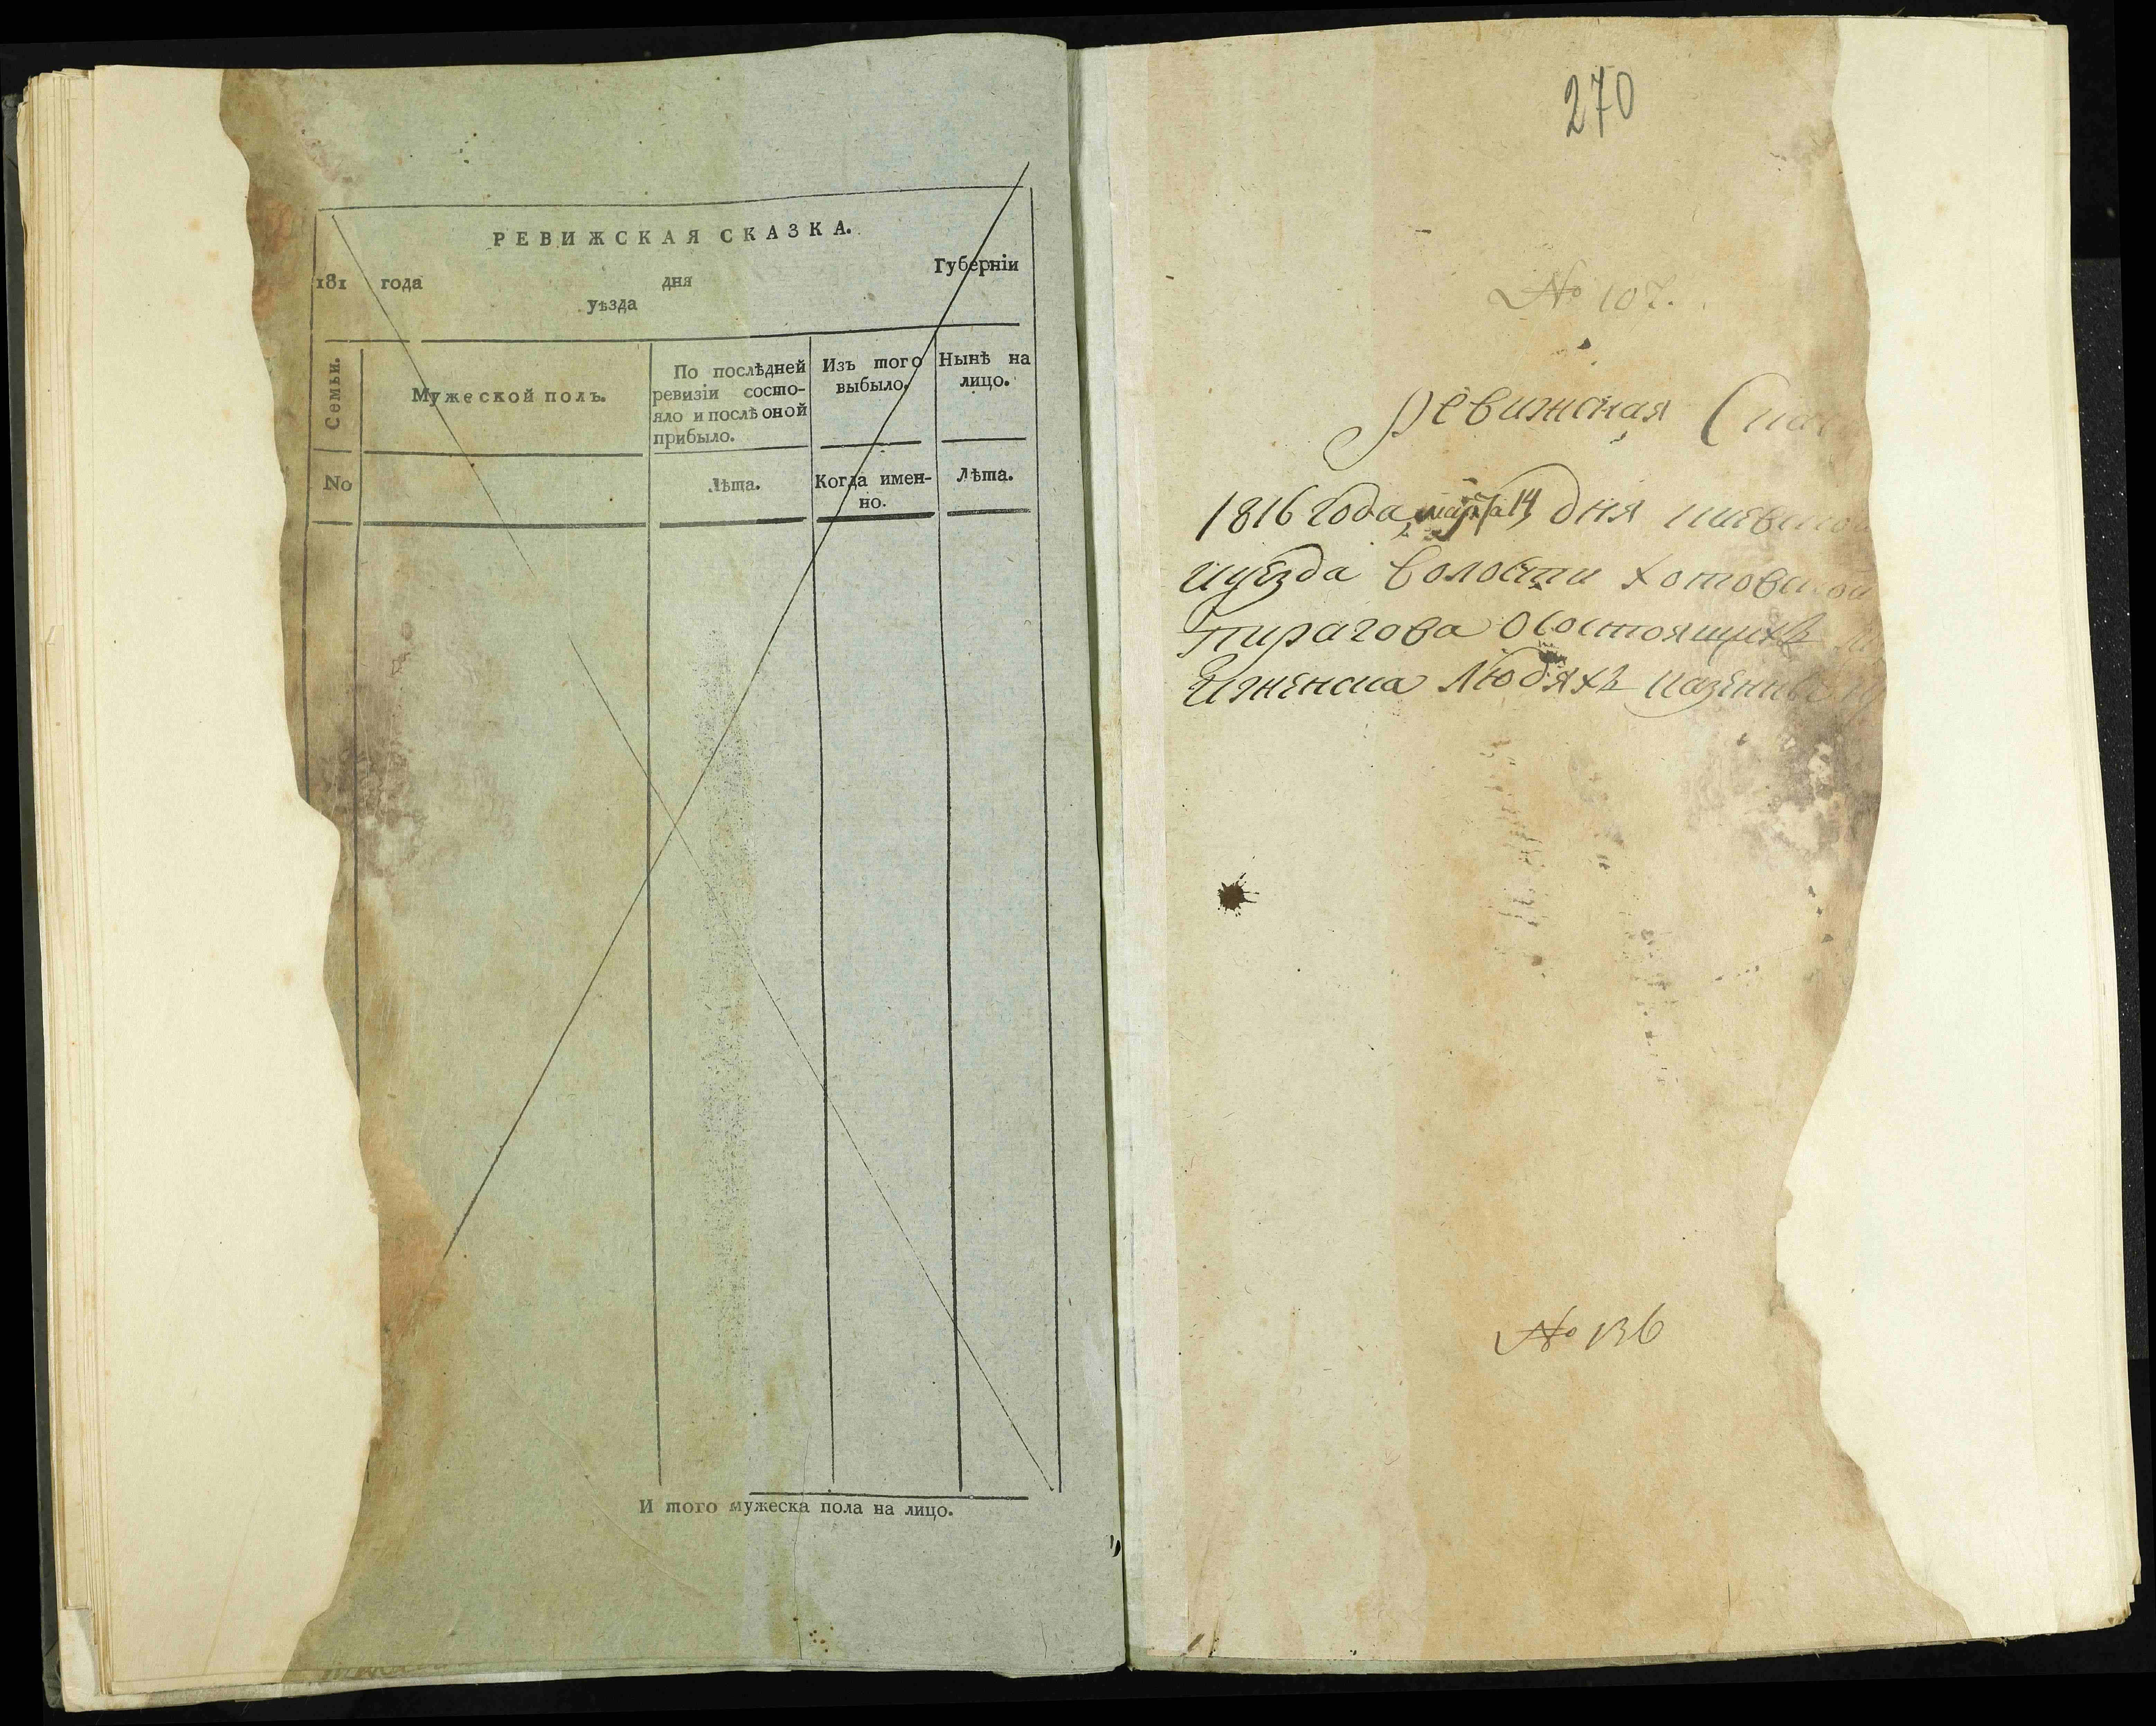 РЕВИЖСКАЯ СКАЗКА.
181 года дня Губерніи
уѣзда
Семьи.
Мужеской полъ.
По послѣдней ревизіи состо-
яло и послѣ оной
прибыло.
Изъ того
выбыло.
Нынѣ на
лицо.
No
Лѣта.
Когда имен-
но.
Лѣта.
И того мужеска пола на лицо.
270
№ 107.
Ревижская
1816 года марта 14 дня киевской
иуезда волости хотовской
Пирагова Осостоящихъ
Иженска Людяхъ
№ 136